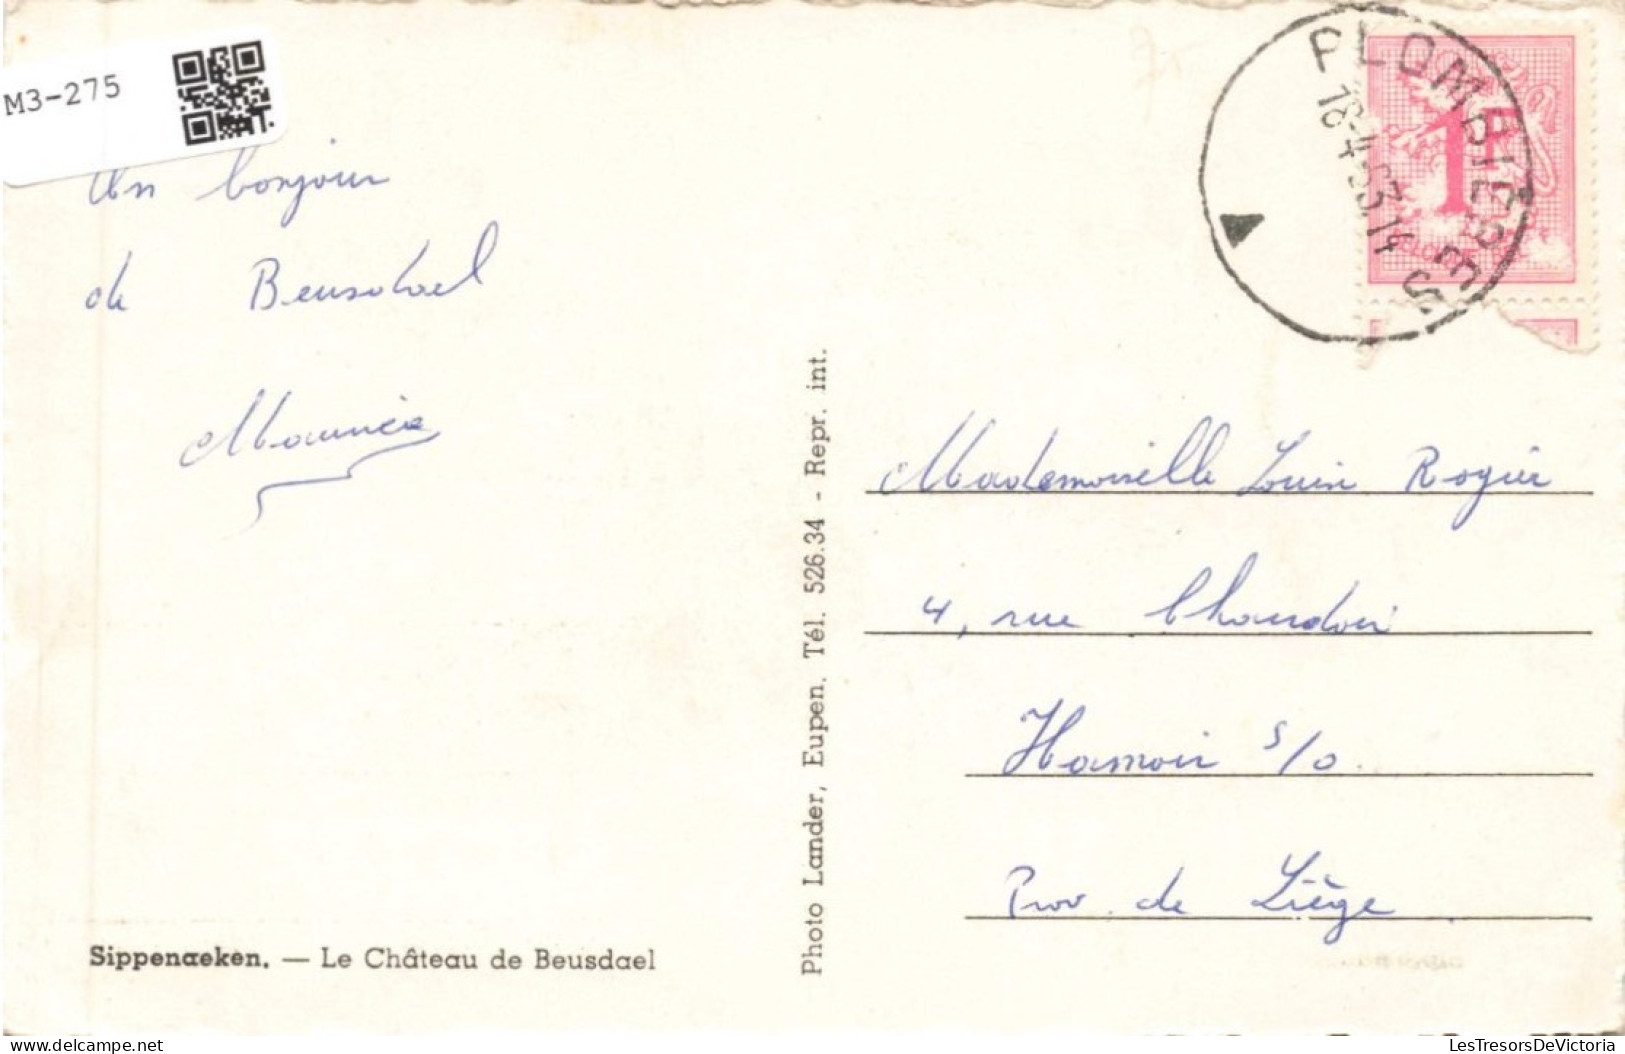 M3-275
Un bonjour
de Beusdael
Maurice
Sippenaeken. — Le Château de Beusdael
Photo Lander, Eupen. Tél. 526.34 - Repr. int.
PLOMBIERES
18-4-63.14
1F
Mademoiselle Rogier
4, rue Chaudoir
Hamoir s/o.
Prov. de Liège
delcampe.net
LesTresorsDeVictoria